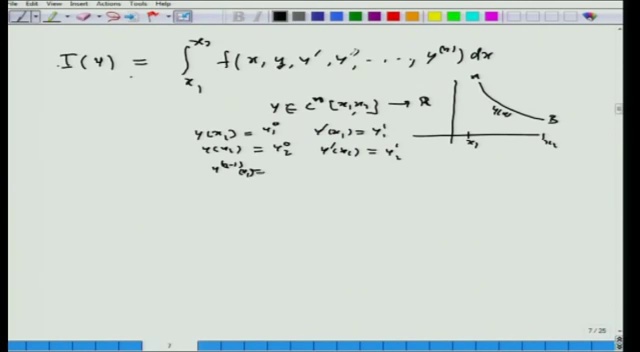 File Edit View Insert Actions Tools Help
I(y) = ∫ₓ₁ˣ² f(x, y, y', y'', ...., y⁽ⁿ⁾) dx
y ∈ Cⁿ [x₁, x₂] → R
y(x₁) = y₁⁰ y'(x₁) = y₁'
y(x₂) = y₂⁰ y'(x₂) = y₂'
y⁽ⁿ⁻¹⁾(x₁) =
A
y(x)
B
x₁ x₂
7 / 25
7